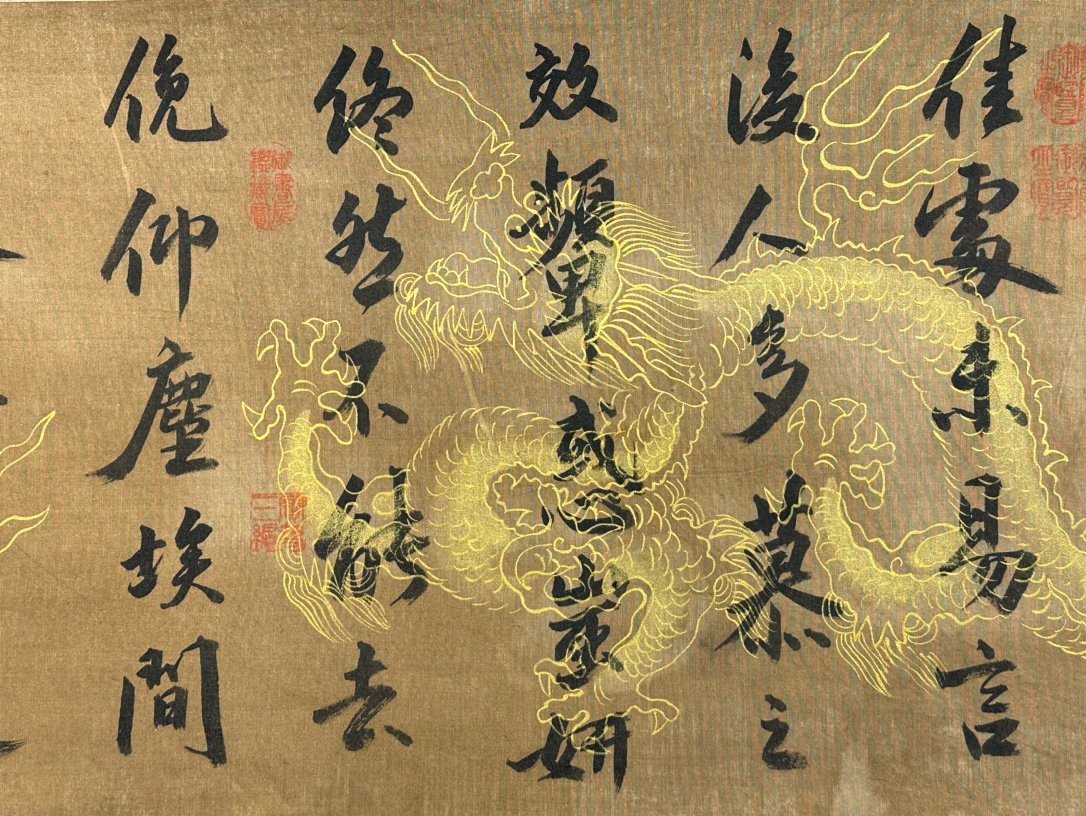 佳處未易言
後人多慕之
效顰惑蚩妍
終然不能去
俛仰塵埃間